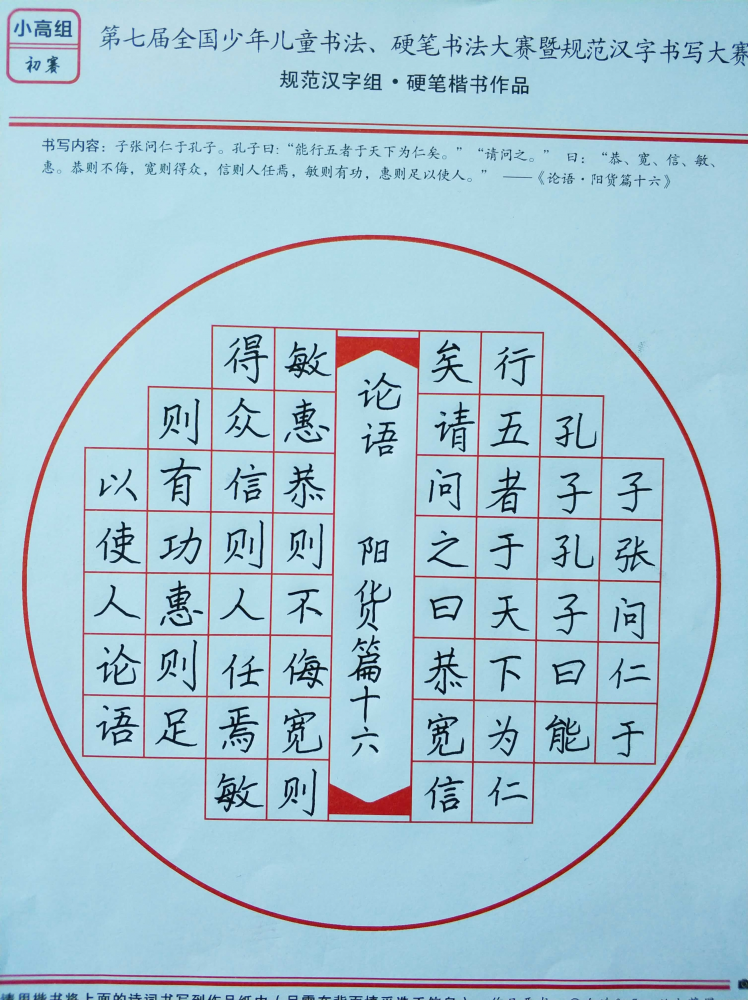 小高组
初赛
第七届全国少年儿童书法、硬笔书法大赛暨规范汉字书写大赛
规范汉字组·硬笔楷书作品
书写内容：子张问仁于孔子。孔子曰：“能行五者于天下为仁矣。” “请问之。” 曰：“恭、宽、信、敏、
惠。恭则不侮，宽则得众，信则人任焉，敏则有功，惠则足以使人。” ——《论语·阳货篇十六》
子张问仁于
孔子孔子曰能
行五者于天下为仁
矣请问之曰恭宽信
论语 阳货篇十六
敏惠恭则不侮宽则
得众信则人任焉敏
则有功惠则足
以使人论语
请用楷书将上面的诗词书写到作品纸中